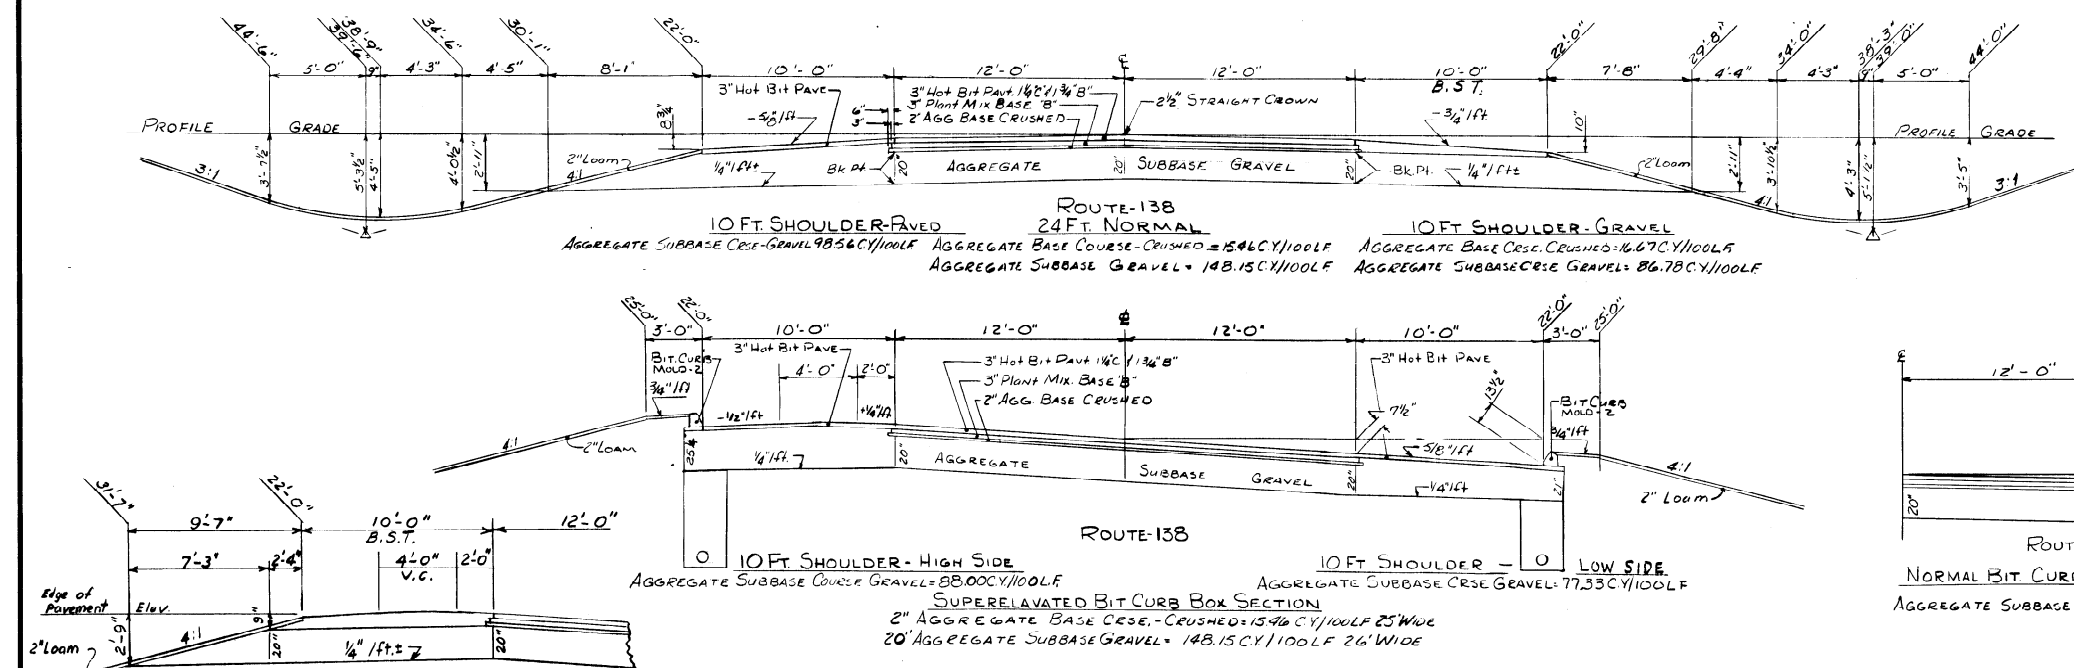 44'-6"
39'-6"
38'-9"
34'-6"
30'-1"
22'-0"
22'-0"
29'-8"
34'-0"
38'-3"
39'-0"
44'-0"
5'-0" 9" 4'-3" 4'-5" 8'-1" 10'-0" 12'-0" ℄ 12'-0" 10'-0" 7'-8" 4'-4" 4'-3" 9" 5'-0"
B.S.T.
3" Hot Bit Pave
3" Hot Bit Pavt. 1¼"C & 1¾"B"
3" Plant Mix Base "B"
2" Agg Base Crushed
2½" Straight Crown
6"
3"
-5/8"/ft
-3/4"/ft
8¾"
10"
Profile Grade
Profile Grade
3:1
3'-7½"
5'-3½"
4'-5"
4'-0½"
2'-11"
2" Loam
4:1
1/4"/ft±
Bk. Pt.
20"
Aggregate
20"
Subbase Gravel
20"
Bk. Pt.
1/4"/ft±
2" Loam
2'-11"
3'-10½"
4:1
4'-3"
5'-1½"
3'-5"
3:1
Route-138
10 Ft. Shoulder-Paved
24 Ft. Normal
10 Ft. Shoulder-Gravel
Aggregate Subbase Crse-Gravel 98.56 C.Y/100LF
Aggregate Base Course-Crushed = 15.46 C.Y/100LF
Aggregate Base Crse. Crushed = 16.67 C.Y/100LF
Aggregate Subbase Gravel = 148.15 C.Y/100LF
Aggregate Subbase Crse Gravel = 86.78 C.Y/100LF
25'-0"
22'-0"
22'-0"
25'-0"
3'-0" 10'-0" 12'-0" ℄ 12'-0" 10'-0" 3'-0"
Bit. Curb
Mold-2
3/4"/ft
3" Hot Bit Pave
4'-0" 2'-0"
3" Hot Bit Pavt 1¼"C & 1¾"B"
3" Plant Mix. Base "B"
2" Agg. Base Crushed
3" Hot Bit Pave
7½"
13½"
Bit Curb
Mold-2
3/4"/ft
-1/2"/ft
+1/4"/ft
-5/8"/ft
4:1
2" Loam
1/4"/ft.
20"
Aggregate
Subbase Gravel
20"
-1/4"/ft
21"
4:1
2" Loam
Route-138
10 Ft. Shoulder - High Side
10 Ft. Shoulder - Low Side
Aggregate Subbase Course Gravel = 88.00 C.Y/100LF
Aggregate Subbase Crse Gravel = 77.33 C.Y/100LF
Superelavated Bit Curb Box Section
2" Aggregate Base Crse.-Crushed = 15.46 C.Y/100LF 25' Wide
20" Aggregate Subbase Gravel = 148.15 C.Y/100LF 26' Wide
31'-7"
22'-0"
9'-7" 10'-0" 12'-0"
B.S.T.
7'-3" 2'-4" 4'-0" 2'-0"
V.C.
Edge of
Pavement Elev.
9"
2'-9"
4:1
2" Loam
20"
1/4"/ft.±
20"
℄
12'-0"
20"
Rout
Normal Bit Cur
Aggregate Subbase